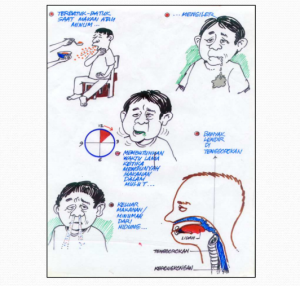 TERBATUK-BATUK
SAAT MAKAN ATAU
MINUM...
... MENGILER
MEMBUTUHKAN
WAKTU LAMA
KETIKA
MENGUNYAH
MAKANAN
DALAM
MULUT...
BANYAK
LENDIR
DI
TENGGOROKAN
KELUAR
MAKANAN/
MINUMAN
DARI
HIDUNG...
LIDAH
TENGGOROKAN
KERONGKONGAN